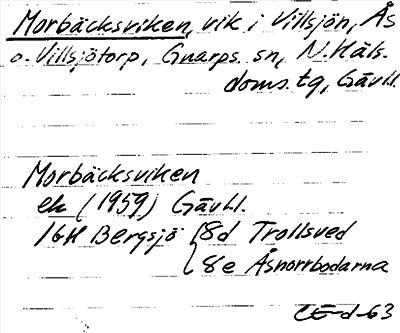 Morbäcksviken, vik i Villsjön, Ås
o. Villsjötorp, Gnarps sn, N. Häls.
doms. tg, Gävl.
Morbäcksviken
ek (1959) Gävl.
16H Bergsjö { 8d Trollsved
8e Åsnorrbodarna